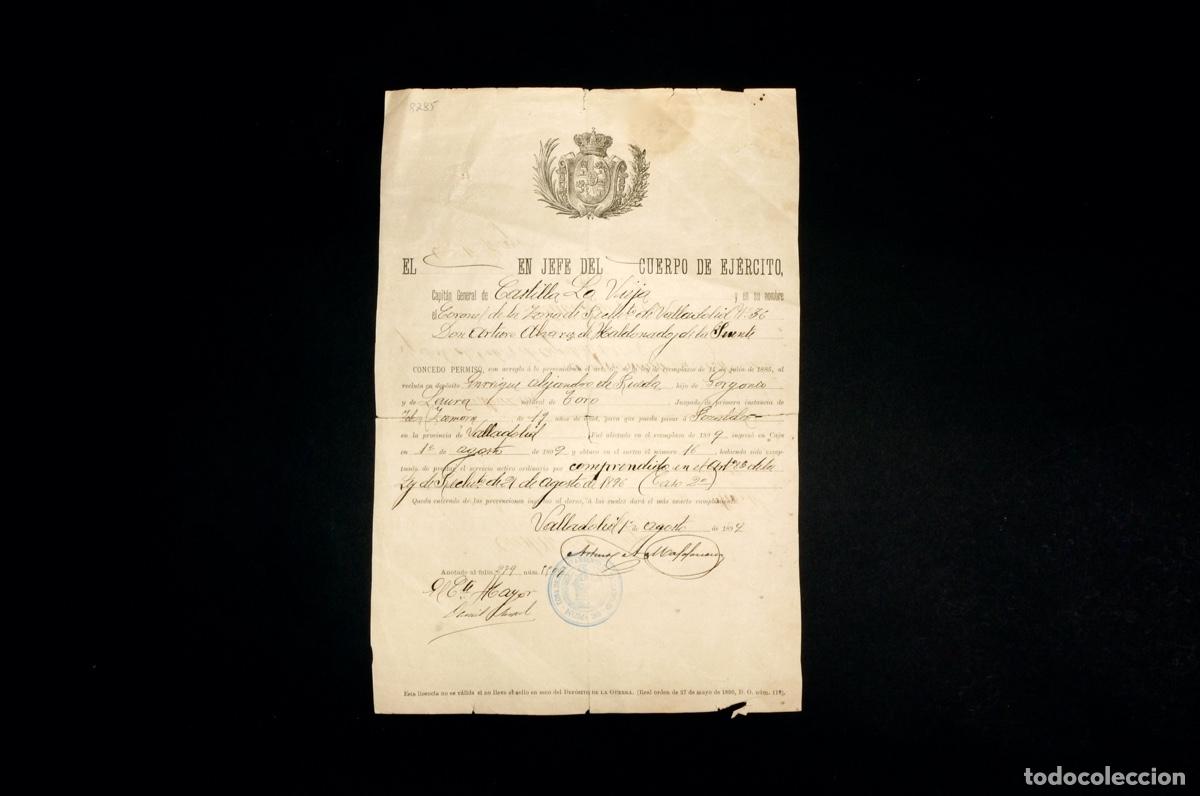 8285
EL EN JEFE DEL CUERPO DE EJÉRCITO,
Capitán General de Castilla La Vieja y en su nombre
el Coronel de la Zona de Reclut.º de Valladolid Nº 36
Don Arturo Alvarez de Maldonado y de la Puente
CONCEDO PERMISO, con arreglo á lo prevenido en el art. de la ley de reemplazos de 11 de julio de 1885, al
recluta en depósito Enrique Alejandro de Rueda, hijo de Gorgonio
y de Laura natural de Toro Juzgado de primera instancia de
Zamora de 19 años de edad, para que pueda pasar á
en la provincia de Valladolid Fué alistado en el reemplazo de 1899 ingresó en Caja
en 1º de agosto de 1899 y obtuvo en el sorteo el número 16, habiendo sido excep-
tuado de prestar el servicio activo ordinario por comprendido en el Artº de la
Ley de Reclutº de 21 de Agosto de 1896 (Caso 2º)
Queda enterado de las prevenciones impresas al dorso, á las cuales dará el más exacto cumplimiento.
Valladolid 1º de agosto de 189
Arturo A. Maldonado
Anotado al folio 279 núm.
El Cte Mayor
Esta licencia no es válida si no lleva el sello en seco del DEPÓSITO DE LA GUERRA. (Real orden de 27 de mayo de 1890, D. O. núm. 119).
todocoleccion